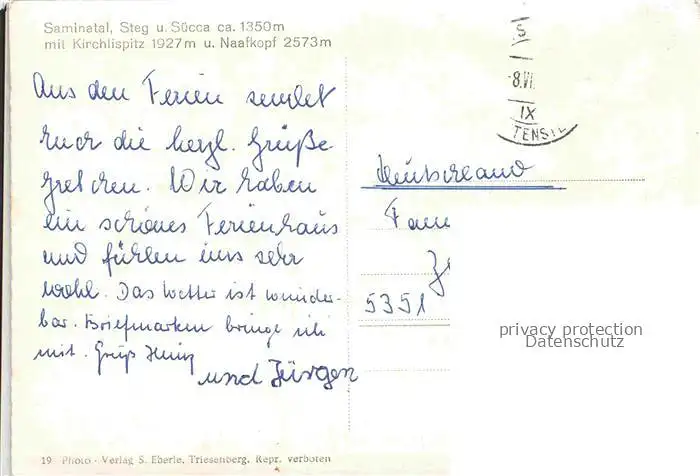 Saminatal, Steg u. Sücca ca. 1350 m
mit Kirchlispitz 1927 m u. Naafkopf 2573 m
Aus den Ferien sendet
Euch die herzl. Grüße
Gretchen. Wir haben
ein schönes Ferienhaus
und fühlen uns sehr
wohl. Das Wetter ist wunder-
bar. Briefmarken bringe ich
mit. Gruß
und Jürgen
8.VI.
IX
TENST
Deutschland
Fam
5351
privacy protection
Datenschutz
19 Photo - Verlag S. Eberle, Triesenberg. Repr. verboten